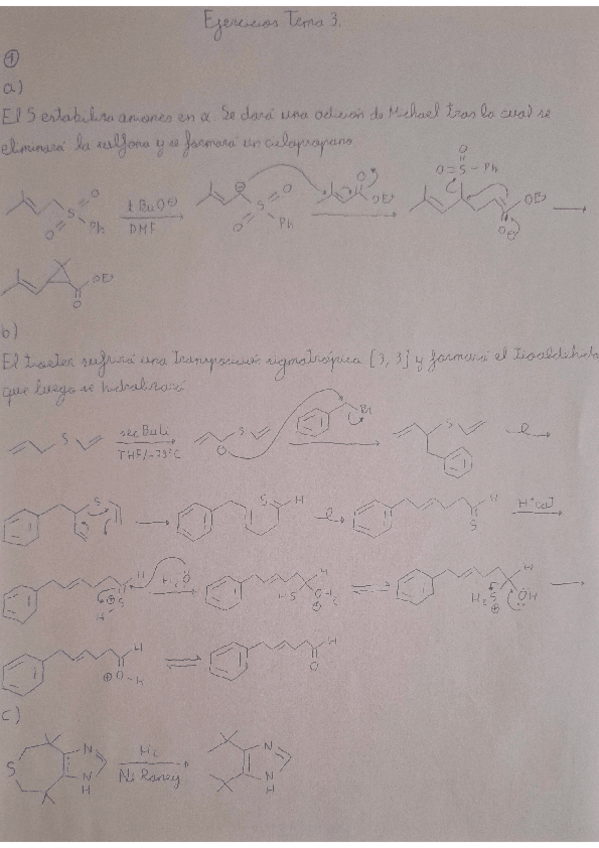 Ejercicios Tema 3.
1
a)
El S estabiliza aniones en α. Se dará una adición de Michael tras la cual se
eliminará la sulfona y se formará un ciclopropano
O O S Ph t BuO⊖ DMF
⊖ O O S Ph O OEt
O O=S-Ph OEt O⊖
OEt O
b)
El tioéter sufrirá una transposición sigmatrópica [3,3] y formará el tioaldehído
que luego se hidrolizará.
S secBuLi THF/-78°C S Br S
S S H H S H⁺ cat
H S H ⊕ H₂O H HS OH₂ ⊕ H H₂S ⊕ OH
H ⊕O-H H O
c)
S N N H H₂ Ni Raney N N H